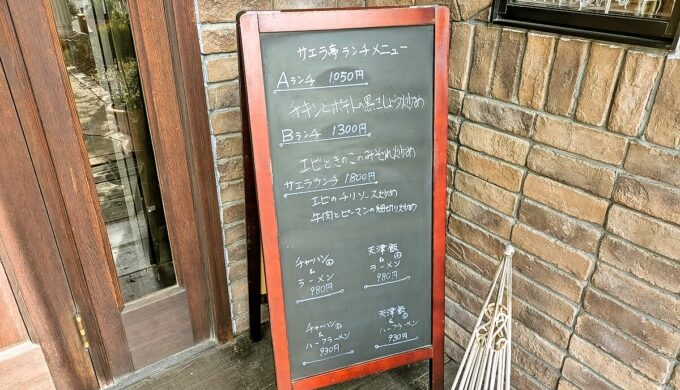 サエラ亭ランチメニュー
Aランチ 1050円
チキンとポテトの黒こしょう炒め
Bランチ 1300円
エビときのこのみぞれ炒め
サエラランチ 1800円
エビのチリソース炒め
牛肉とピーマンの細切り炒め
チャーハン㊥
&
ラーメン
980円
天津飯
㊥
&
ラーメン
980円
チャーハン
&
ハーフラーメン
930円
天津飯
&
ハーフラーメン
930円